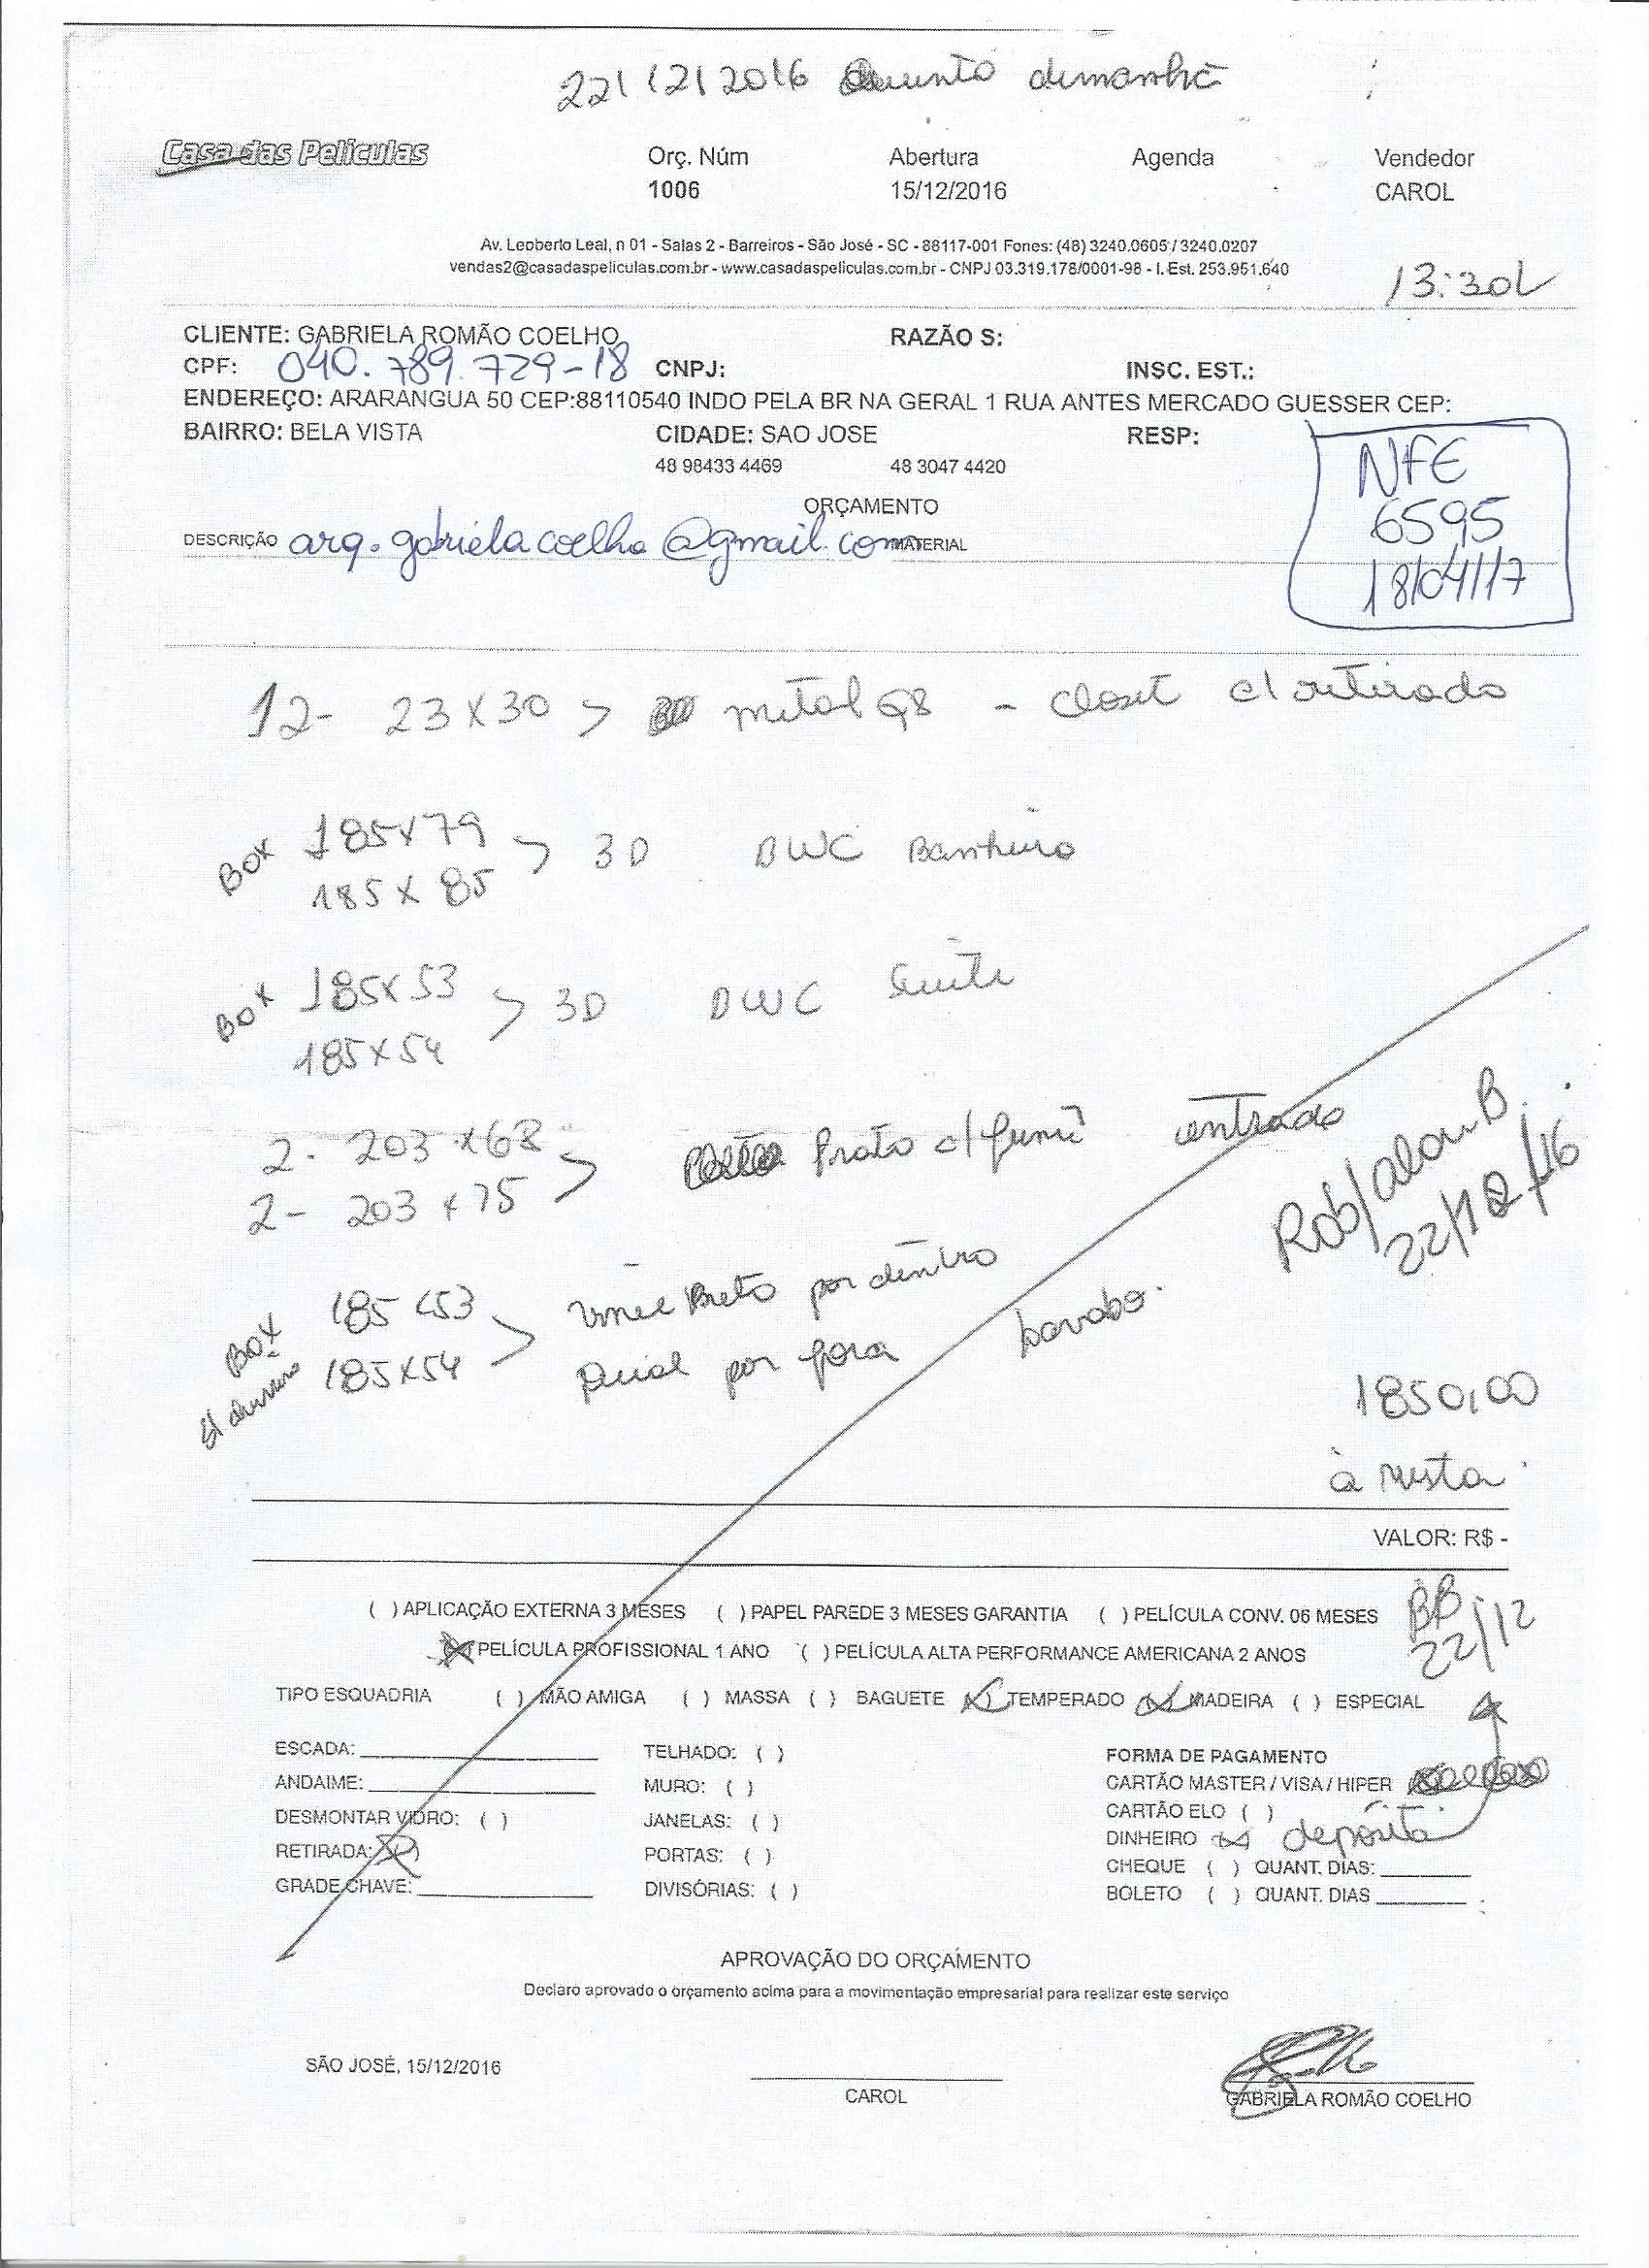 22/12/2016 Quinta dimanhã
Casa das Películas
Orç. Núm Abertura Agenda Vendedor
1006 15/12/2016 CAROL
Av. Leoberto Leal, n 01 - Salas 2 - Barreiros - São José - SC - 88117-001 Fones: (48) 3240.0605 / 3240.0207
vendas2@casadaspeliculas.com.br - www.casadaspeliculas.com.br - CNPJ 03.319.178/0001-98 - I. Est. 253.951.640
13:30
CLIENTE: GABRIELA ROMÃO COELHO RAZÃO S:
CPF: 040.789.729-18 CNPJ: INSC. EST.:
ENDEREÇO: ARARANGUA 50 CEP:88110540 INDO PELA BR NA GERAL 1 RUA ANTES MERCADO GUESSER CEP:
BAIRRO: BELA VISTA CIDADE: SAO JOSE RESP:
48 98433 4469 48 3047 4420
NFE
6595
18/04/17
ORÇAMENTO
DESCRIÇÃO arq.gabrielacoelho@gmail.com MATERIAL
12- 23x30 > metal G8 - closet c/ retirada
Box 185x79 > 3D BWC Banheiro
185x85
Box 185x53 > 3D BWC Suite
185x54
2- 203x68 > Prata c/ fumê entrada
2- 203x75
Box 185x53 > Vinil Preto por dentro
185x54 por fora lavabo.
Rob/alan B.
22/12/16
1850,00
à vista
VALOR: R$ -
( ) APLICAÇÃO EXTERNA 3 MESES ( ) PAPEL PAREDE 3 MESES GARANTIA ( ) PELÍCULA CONV. 06 MESES
(X) PELÍCULA PROFISSIONAL 1 ANO ( ) PELÍCULA ALTA PERFORMANCE AMERICANA 2 ANOS
BB
22/12
TIPO ESQUADRIA ( ) MÃO AMIGA ( ) MASSA ( ) BAGUETE (X) TEMPERADO (X) MADEIRA ( ) ESPECIAL
ESCADA: TELHADO: ( ) FORMA DE PAGAMENTO
ANDAIME: MURO: ( ) CARTÃO MASTER / VISA / HIPER
DESMONTAR VIDRO: ( ) JANELAS: ( ) CARTÃO ELO ( )
RETIRADA: (X) PORTAS: ( ) DINHEIRO (X) depósito
GRADE CHAVE: DIVISÓRIAS: ( ) CHEQUE ( ) QUANT. DIAS:
BOLETO ( ) QUANT. DIAS
APROVAÇÃO DO ORÇAMENTO
Declaro aprovado o orçamento acima para a movimentação empresarial para realizar este serviço
SÃO JOSÉ, 15/12/2016
CAROL GABRIELA ROMÃO COELHO